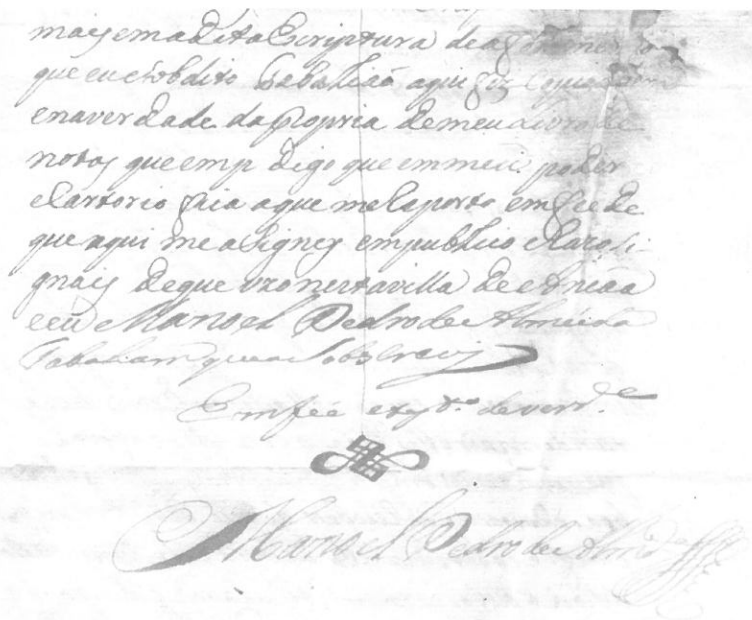 mais em a dita Escriptura de
que eu sobdito Tabaliaõ aqui fiz
e na verdade da propria de meu Livro de
notas que emp digo que em meu poder
e Cartorio fica a que me Reporto em fee de
que aqui me asigney em publico e Razo Si
gnais de que uzo nesta villa de
e eu Manoel Pedro de Almeida
Tabaliam que a Sobscrevi
Em fee e tt.º de verd.e
Manoel Pedro de Almd.a